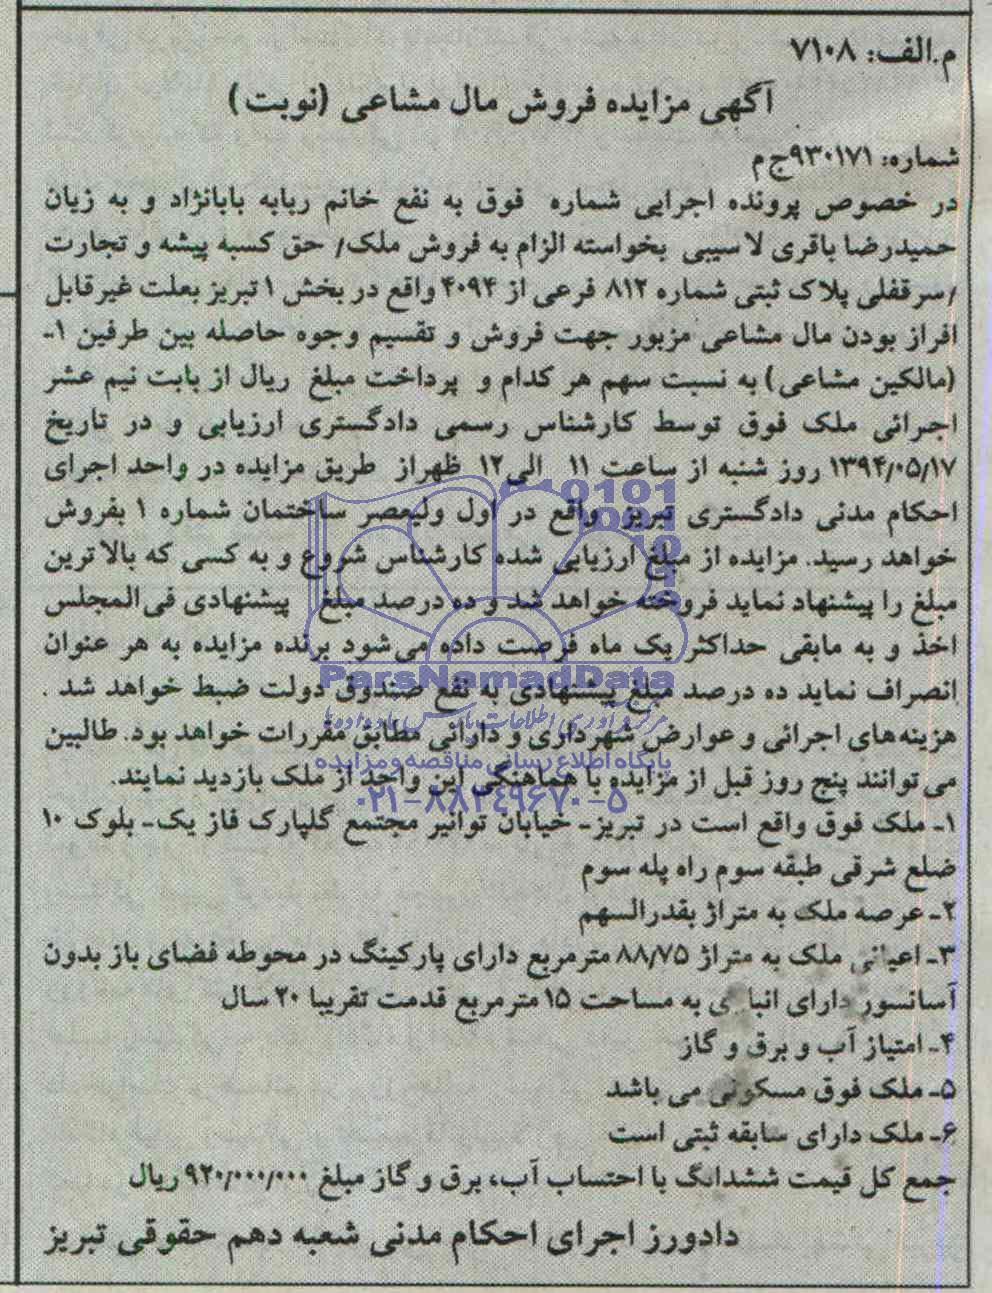 م.الف: ۷۱۰۸
آگهی مزایده فروش مال مشاعی (نوبت)
شماره: ۹۳۰۱۷۱ج م
در خصوص پرونده اجرایی شماره فوق به نفع خانم ربابه بابانژاد و به زیان
حمیدرضا باقری لاسیبی بخواسته الزام به فروش ملک/ حق کسبه پیشه و تجارت
/سرقفلی پلاک ثبتی شماره ۸۱۲ فرعی از ۴۰۹۴ واقع در بخش ۱ تبریز بعلت غیرقابل
افراز بودن مال مشاعی مزبور جهت فروش و تقسیم وجوه حاصله بین طرفین ۱-
(مالکین مشاعی) به نسبت سهم هر کدام و پرداخت مبلغ ریال از بابت نیم عشر
اجرائی ملک فوق توسط کارشناس رسمی دادگستری ارزیابی و در تاریخ
۱۳۹۴/۰۵/۱۷ روز شنبه از ساعت ۱۱ الی۱۲ ظهراز طریق مزایده در واحد اجرای
احکام مدنی دادگستری تبریز واقع در اول ولیعصر ساختمان شماره ۱ بفروش
خواهد رسید. مزایده از مبلغ ارزیابی شده کارشناس شروع و به کسی که بالاترین
مبلغ را پیشنهاد نماید فروخته خواهد شد و ده درصد مبلغ پیشنهادی فی‌المجلس
اخذ و به مابقی حداکثر یک ماه فرصت داده می‌شود برنده مزایده به هر عنوان
انصراف نماید ده درصد مبلغ پیشنهادی به نفع صندوق دولت ضبط خواهد شد .
هزینه‌های اجرائی و عوارض شهرداری و دارائی مطابق مقررات خواهد بود. طالبین
می‌توانند پنج روز قبل از مزایده با هماهنگی این واحد از ملک بازدید نمایند.
۱- ملک فوق واقع است در تبریز- خیابان توانیر مجتمع گلپارک فاز یک- بلوک ۱۰
ضلع شرقی طبقه سوم راه پله سوم
۲- عرصه ملک به متراژ بقدرالسهم
۳- اعیانی ملک به متراژ ۸۸/۷۵ مترمربع دارای پارکینگ در محوطه فضای باز بدون
آسانسور دارای انباری به مساحت ۱۵ مترمربع قدمت تقریبا ۲۰ سال
۴- امتیاز آب و برق و گاز
۵- ملک فوق مسکونی می باشد
۶- ملک دارای سابقه ثبتی است
جمع کل قیمت ششدانگ با احتساب آب، برق و گاز مبلغ ۹۲۰/۰۰۰/۰۰۰ ریال
دادورز اجرای احکام مدنی شعبه دهم حقوقی تبریز
ParsNamadData
مرکز فرآوری اطلاعات پارس نماد داده‌ها
پایگاه اطلاع رسانی مناقصه و مزایده
۰۲۱-۸۸۳۴۹۶۷۰-۵